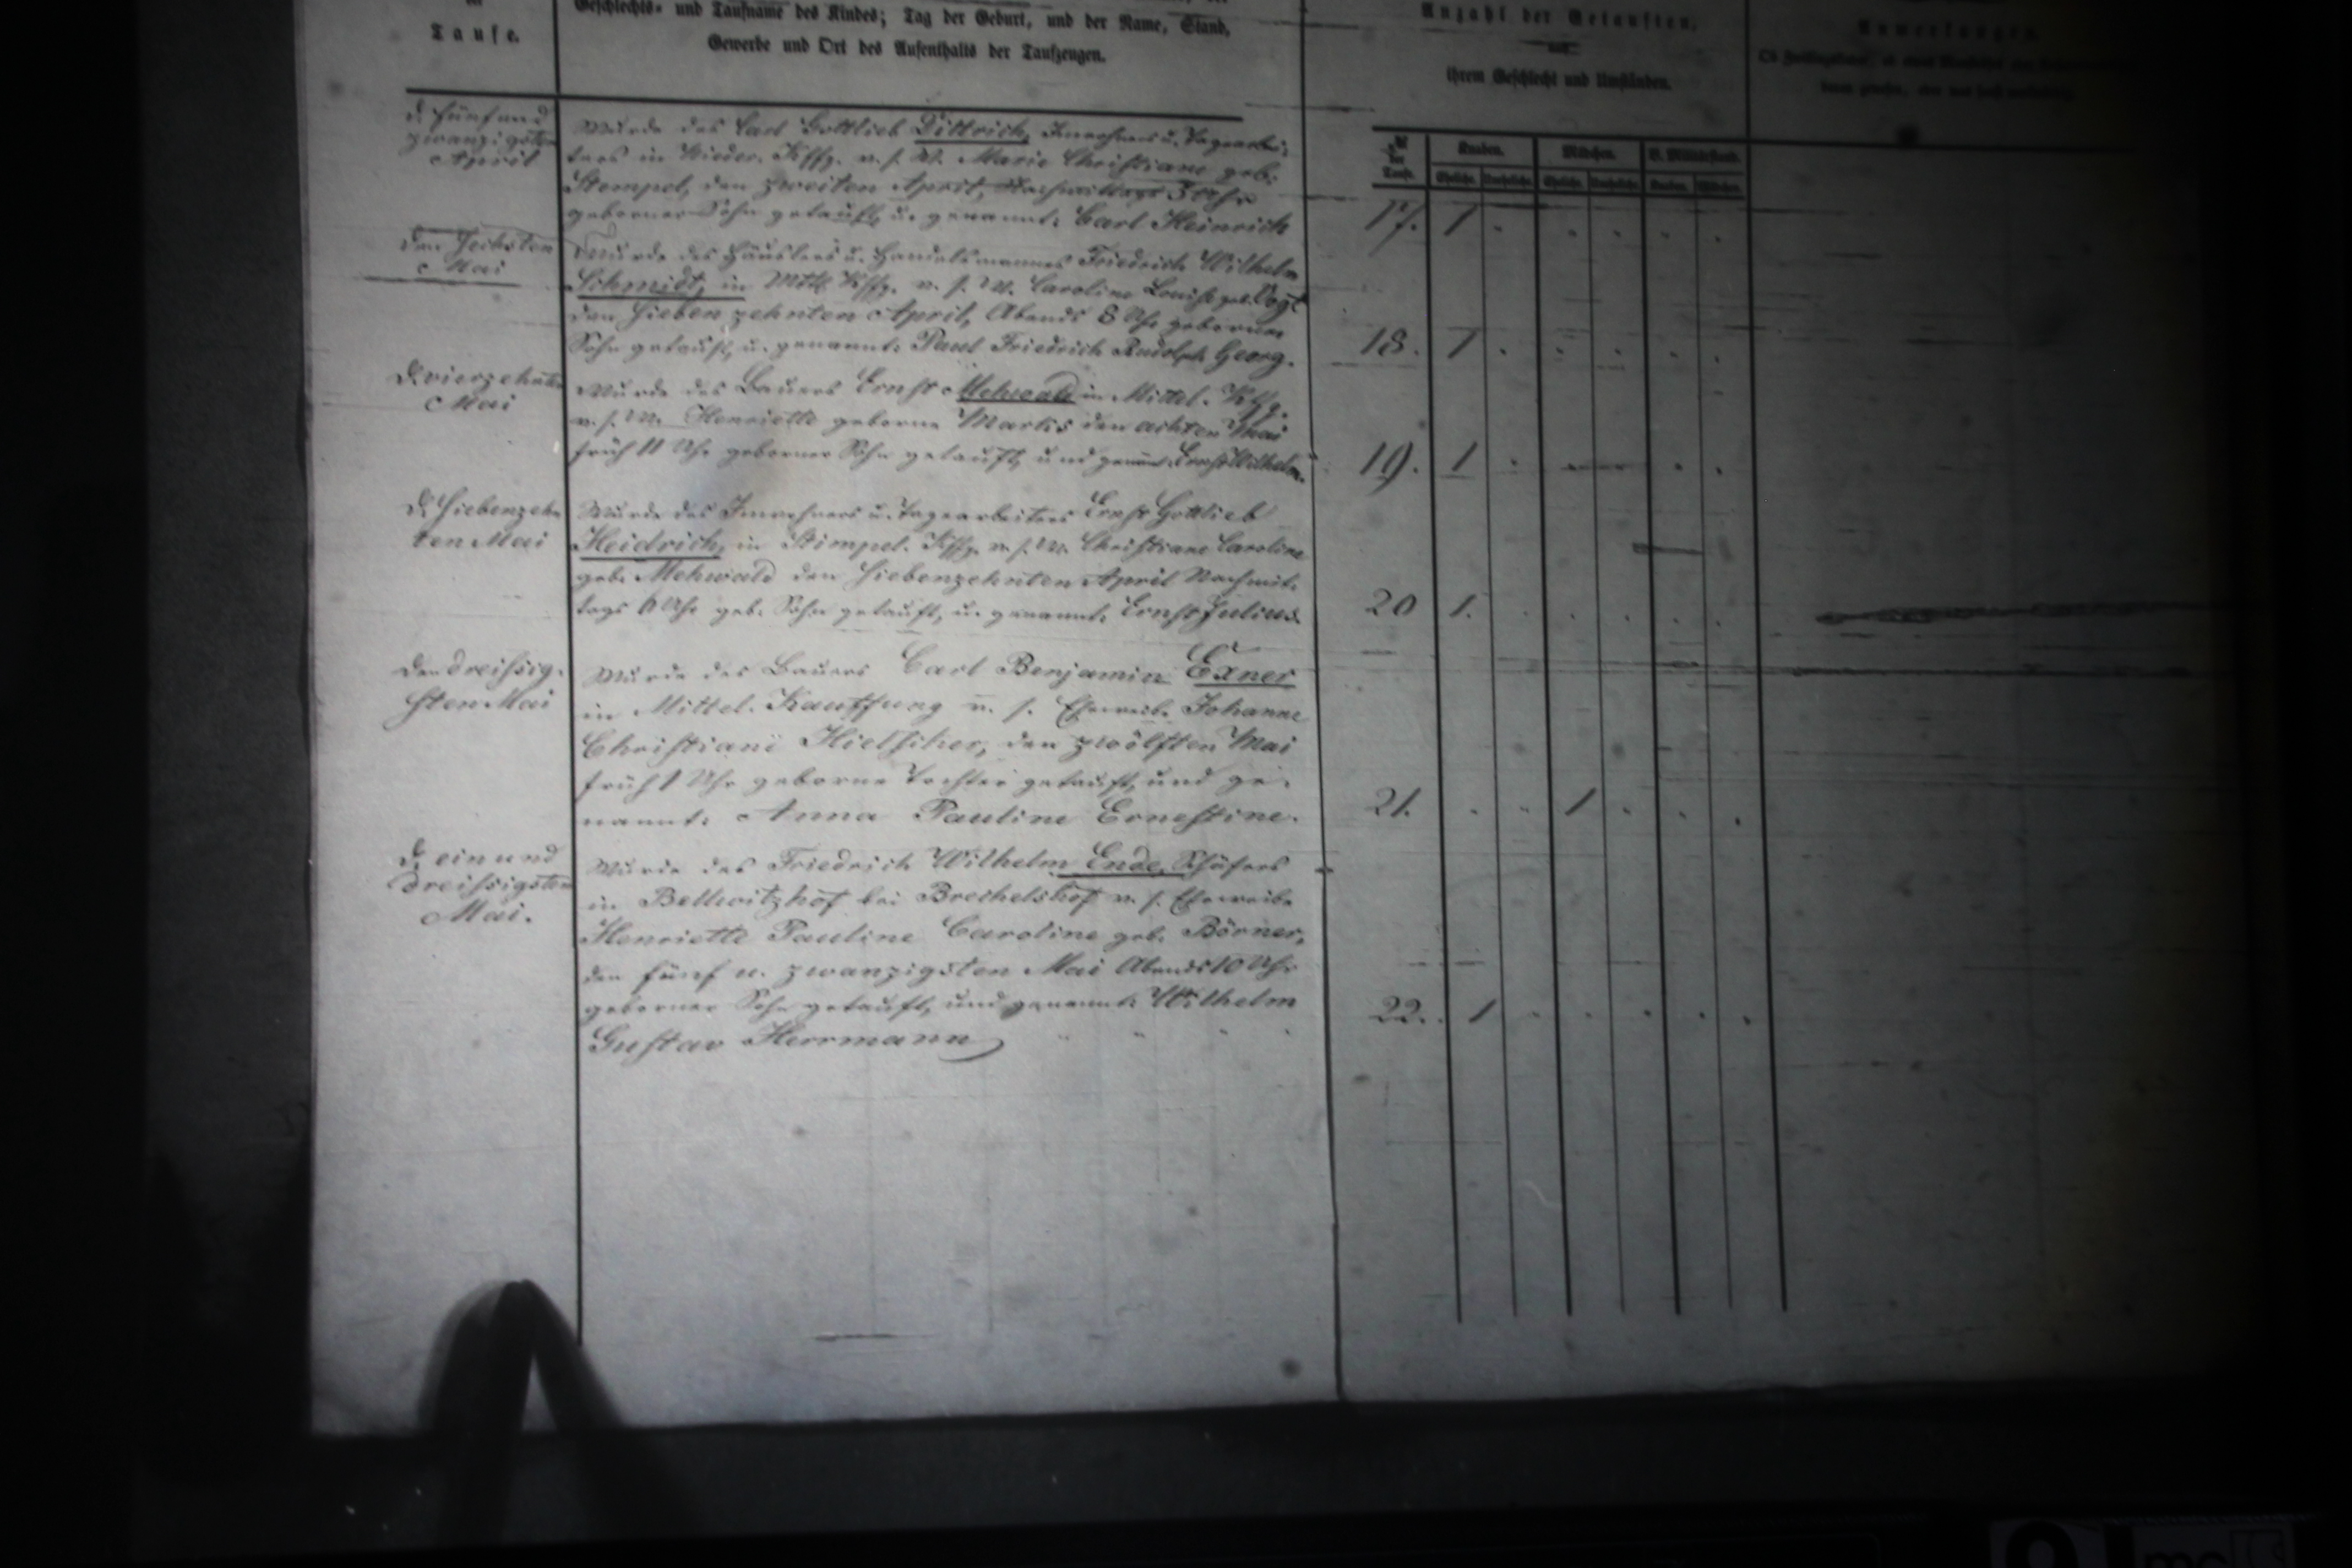 Taufe.
Geschlechts- und Taufname des Kindes; Tag der Geburt, und der Name, Stand,
Gewerbe und Ort des Aufenthalts der Taufzeugen.
Anzahl der Getauften,
nach
ihrem Geschlecht und Umständen.
Anmerkungen.
der
Taufe.
Knaben.
Mädchen.
Eheliche.
Uneheliche.
Eheliche.
Uneheliche.
Knaben.
Mädchen.
d. fünf und
zwanzigsten
April
Wurde des Carl Gottlieb Dittrich, Inwohners u. Tagearbei-
ters in Nieder. Kffg. v. s. W. Marie Christiane geb.
Stempel, den zweiten April, Nachmittags 3 Uhr
geborner Sohn getauft, u. genannt: Carl Heinrich
17. 1
den sechsten
Mai
Wurde des Häuslers u. Handelsmannes Friedrich Wilhelm
Schmidt, in Mttl. Kffg. v. s. W. Caroline Louise geb. Vogt
den siebenzehnten April, Abends 8 Uhr geborner
Sohn getauft, u. genannt: Paul Friedrich Rudolph Georg.
18. 1
d. vierzehnten
Mai
Wurde des Bauers Ernst Mehwald in Mittel. Kffg.
v. s. W. Henriette geborne Marks den achten Mai
früh 11 Uhr geborner Sohn getauft, und genannt Ernst Wilhelm.
19. 1
d. siebenzehn
ten Mai
Wurde des Inwohners u. Tagearbeiters Ernst Gottlieb
Heidrich, in Stimpel. Kffg. v. s. W. Christiane Caroline
geb. Mehwald den siebenzehnten April Nachmit-
tags 6 Uhr geb. Sohn getauft, u. genannt: Ernst Julius.
20 1.
den dreissig-
sten Mai
Wurde des Bauers Carl Benjamin Exner
in Mittel. Kauffung v. s. Eheweibe Johanne
Christiane Hielscher, den zwölften Mai
früh 1 Uhr geborne Tochter getauft, und ge-
nannt: Anna Pauline Ernestine.
21. 1
d. ein und
dreissigsten
Mai.
Wurde des Friedrich Wilhelm Ende, Schäfers
in Bellwitzhof bei Brechelshof v. s. Eheweibe
Henriette Pauline Caroline geb. Börner,
den fünf u. zwanzigsten Mai Abends 10 Uhr
geborner Sohn getauft, und genannt: Wilhelm
Gustav Herrmann
22. 1